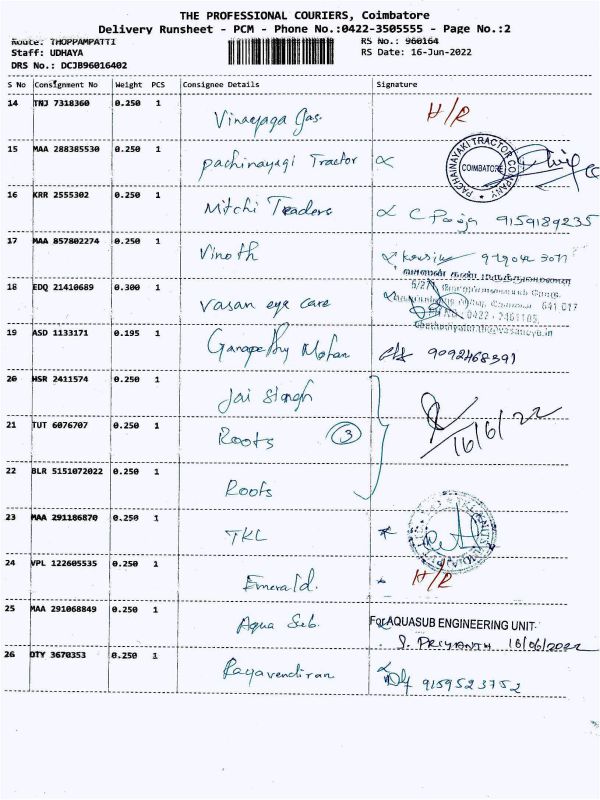 THE PROFESSIONAL COURIERS, Coimbatore
Delivery Runsheet - PCM - Phone No.:0422-3505555 - Page No.:2
Route: THOPPAMPATTI RS No.: 960164
Staff: UDHAYA RS Date: 16-Jun-2022
DRS No.: DCJB96016402
S No Consignment No Weight PCS Consignee Details Signature
14 TNJ 7318360 0.250 1 Vinayaga Gas. H/R
15 MAA 288385530 0.250 1 pachinayagi Tractor
PACHAINAYAKI TRACTOR COMPANY
COIMBATORE
16 KRR 2555302 0.250 1 Mitchi Traders C Pooja 9159189235
17 MAA 857802274 0.250 1 Vinoth
18 EDQ 21410689 0.300 1 vasan eye care
641 017
0422 - 2461105
19 ASD 1133171 0.195 1 Ganapathy Mohan 9092468391
20 HSR 2411574 0.250 1 Jai Singh
21 TUT 6076707 0.250 1 Roots 3 16/6/22
22 BLR 5151072022 0.250 1 Roots
23 MAA 291186870 0.250 1 TKL
24 VPL 122605535 0.250 1 Emerald. H/R
25 MAA 291068849 0.250 1 Aqua Sub. For AQUASUB ENGINEERING UNIT
S. PRIYANTH 16/06/2022
26 OTY 3670353 0.250 1 Ragavendiran 9159523752